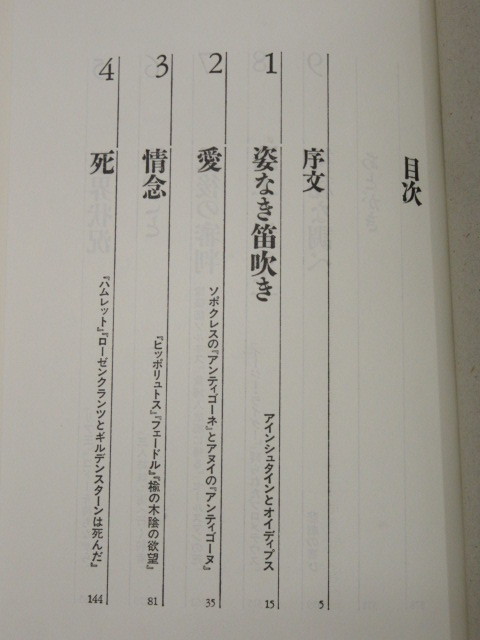 目次
序文
5
1
姿なき笛吹き
アインシュタインとオイディプス
15
2
愛
ソポクレスの『アンティゴーネ』とアヌイの『アンティゴーヌ』
35
3
情念
『ヒッポリュトス』『フェードル』『楡の木陰の欲望』
81
4
死
『ハムレット』『ローゼンクランツとギルデンスターンは死んだ』
144